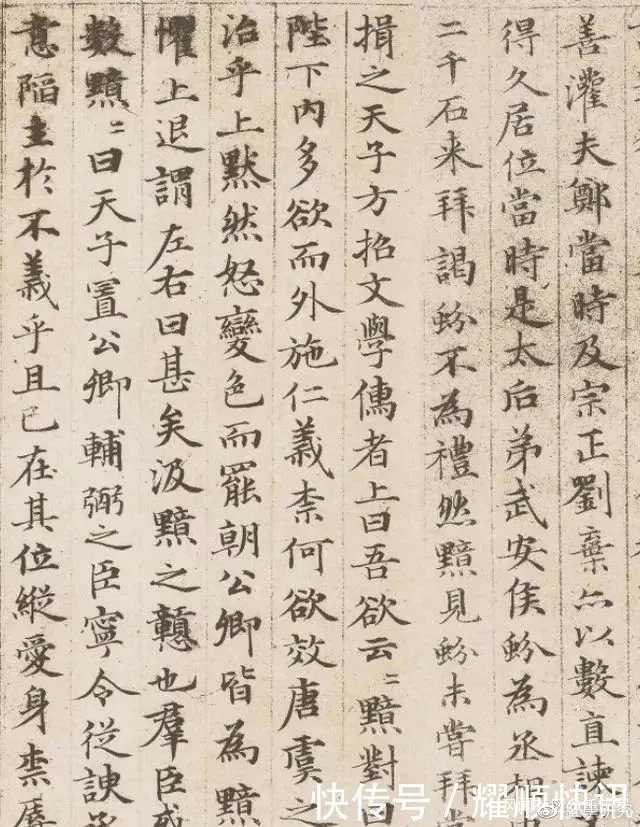 善灌夫鄭當時及宗正劉棄亦以數直諫
得久居位當時是太后弟武安侯蚡為丞相
二千石来拜謁蚡不為禮然黯見蚡未嘗拜
揖之天子方招文學儒者上曰吾欲云〻黯對曰
陛下內多欲而外施仁義柰何欲效唐虞之
治乎上默然怒變色而罷朝公卿皆為黯
懼上退謂左右曰甚矣汲黯之戇也羣臣或
數黯〻曰天子置公卿輔弼之臣寧令從諛承
意陷主於不義乎且已在其位縱愛身柰辱
快传号／耀顺快讯